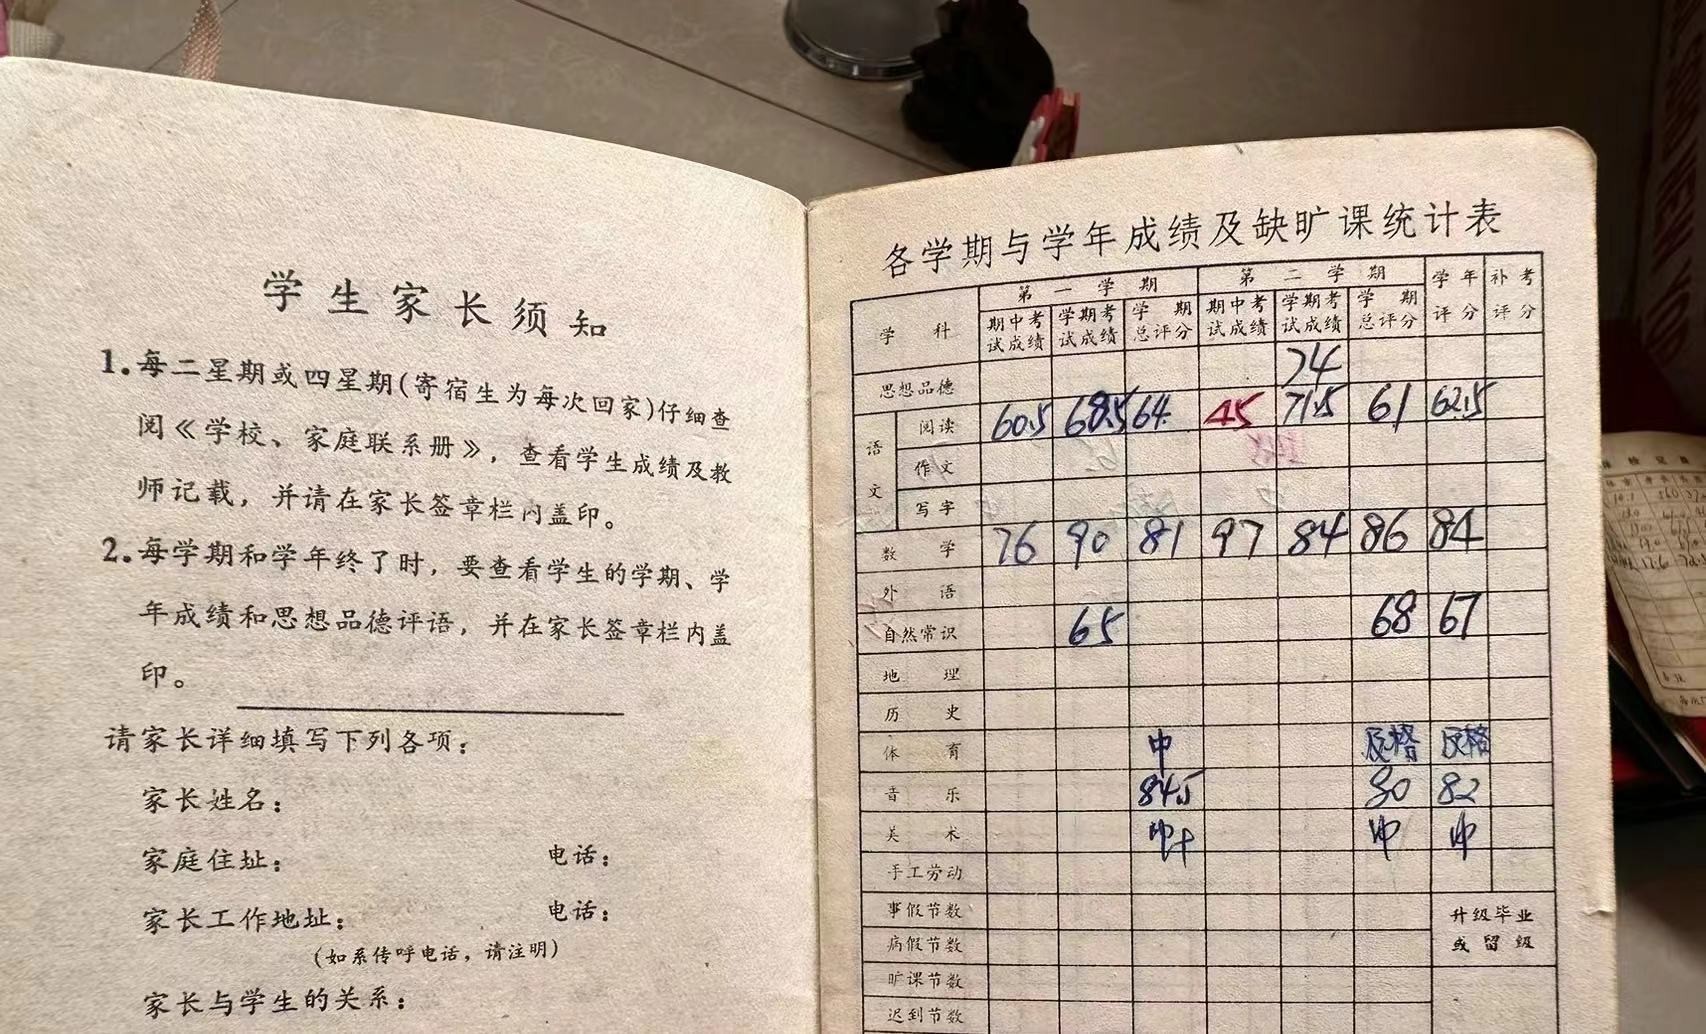 学生家长须知
1.每二星期或四星期(寄宿生为每次回家)仔细查
阅《学校、家庭联系册》，查看学生成绩及教
师记载，并请在家长签章栏内盖印。
2.每学期和学年终了时，要查看学生的学期、学
年成绩和思想品德评语，并在家长签章栏内盖
印。
请家长详细填写下列各项：
家长姓名：
家庭住址： 电话：
家长工作地址： 电话：
(如系传呼电话，请注明)
家长与学生的关系：
各学期与学年成绩及缺旷课统计表
学科 第一学期 第二学期 学年评分 补考评分
期中考试成绩 学期考试成绩 学期总评分 期中考试成绩 学期考试成绩 学期总评分
思想品德 74
语文
阅读 60.5 68.5 64 45 71.5 61 62.5
作文
写字
数学 76 90 81 97 84 86 84
外语
自然常识 65 68 67
地理
历史
体育 中 及格 及格
音乐 84.5 80 82
美术 中+ 中 中
手工劳动
事假节数 升级毕业
病假节数 或留级
旷课节数
迟到节数